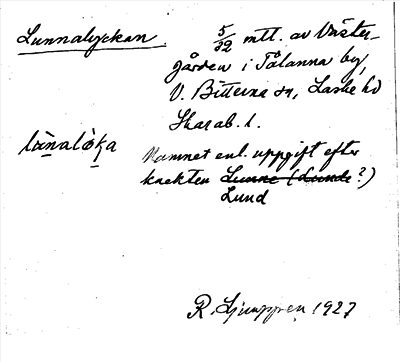 Lunnalyckan 5/32 mtl. av Väster-
gården i Tålanna by,
V. Bitterna sn, Laske hd
Skarab. l.
lùnalỳka Namnet enl. uppgift efter
knekten Lunne (Lunde?)
Lund
R. Ljunggren 1927